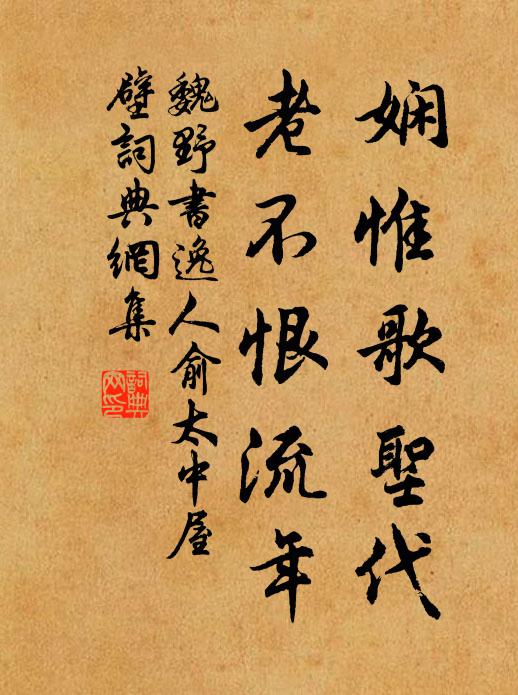 娴惟歌聖代
老不恨流年
魏野書逸人俞太中屋
壁詞典網集
詞典
网印